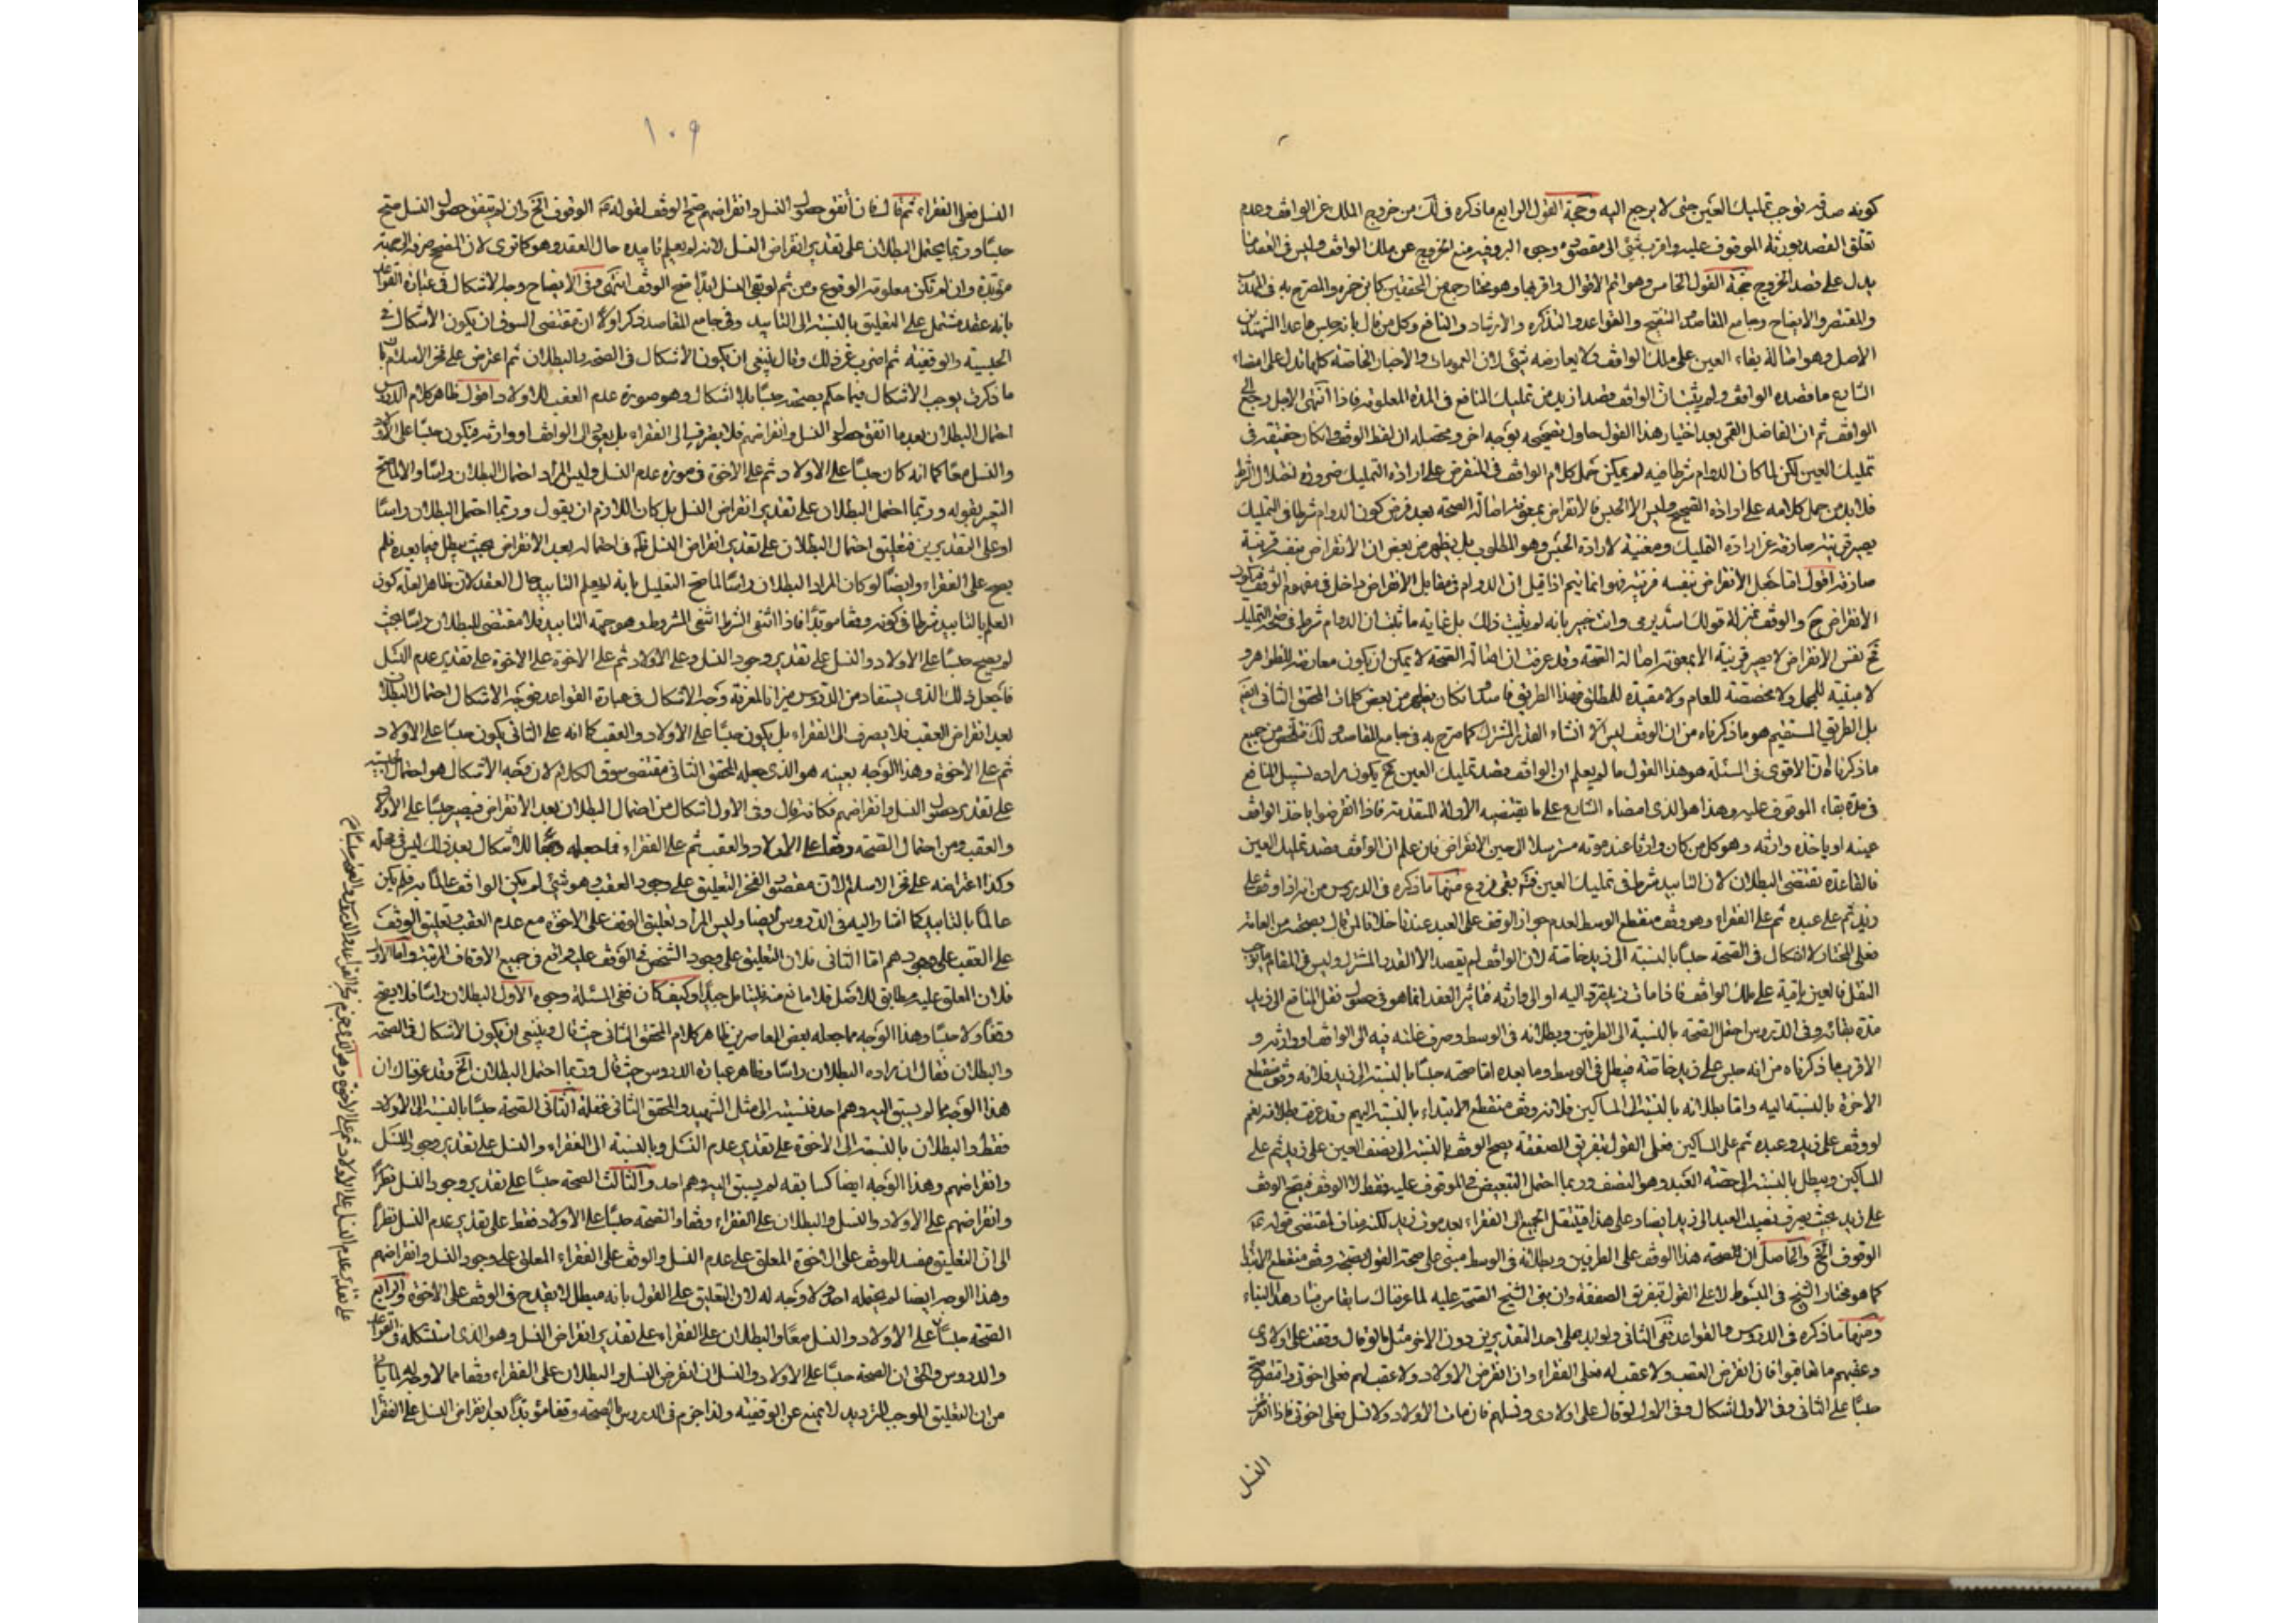 كونه صدقه توجب تمليك العين حتى لا يرجع اليه وحجة القول الرابع ما ذكره في لك من خروج الملك عن الواقف وعدم
تعلق القصد بورثة الموقوف عليه واقرب شئ الى مقصوده وجوه البر وفيه منع الخروج عن ملك الواقف وليس في العقد ما
يدل على قصد الخروج حجة القول الخامس وهو اتم الاقوال واقربها وهو مختار جمع من المحققين كابن حمزه والمصرح به في
والمقتصر والايضاح وجامع المقاصد والتنقيح والقواعد والتذكره والارشاد والنافع وكل من قال بانه حبس ما عدا الشهيدين
الاصل وهو اصالة بقاء العين على ملك الواقف ولا يعارضه شئ لان العمومات والاخبار الخاصة كلها تدل على امضاء
الشارع ما قصده الواقف ولم يثبت ان الواقف قصد ازيد من تمليك المنافع في المدة المعلومة فاذا انتهى الاجل رجع الى
الواقف ثم ان الفاضل القمى بعد اختيار هذا القول حاول تصحيحه بوجه اخر ومحصله ان لفظ الوقف وان كان حقيقة في
تمليك العين لكن لما كان الدوام شرطا فيه لم يمكن حمل كلام الواقف في المنقرض على ارادة التمليك ضرورة اختلال الشرط
فلا بد من حمل كلامه على ارادة الصحيح وليس الا الحبس فالانقراض بمعونة اصالة الصحة بعد فرض كون الدوام شرطا في التمليك
يصير قرينة صارفة عن ارادة التمليك ومعينة لارادة الحبس وهو المطلوب بل يظهر من بعض ان الانقراض بنفسه قرينة
صارفة اقول اما جعل الانقراض بنفسه قرينة فهو انما يتم اذا قيل ان الدوام في مقابل الانقراض داخل في مفهوم الوقف فيكون
الانقراض ح والوقف بمنزلة قولك اسد يرمى وانت خبير بانه لم يثبت ذلك بل غاية ما ثبت ان الدوام شرط في صحة التمليك
فح نفس الانقراض لا يصير قرينة الا بمعونة اصالة الصحة وقد عرفت ان اصالة الصحة لا يمكن ان يكون معارضة للظواهر و
لا مبينة للمجمل ولا مخصصة للعام ولا مقيدة للمطلق فهذا الطريق فاسد وان كان يظهر من بعض كلمات المحقق الثانى ايضا
بل الطريق المستقيم هو ما ذكرناه من ان الوقف ليس الا انشاء القدر المشترك كما صرح به في جامع المقاصد و لك فتلخص من جميع
ما ذكرنا ان الاقوى في المسئلة هو هذا القول ما لم يعلم ان الواقف قصد تمليك العين بحيث يكون مراده تسبيل المنافع
في مدة بقاء الموقوف عليه وهذا هو الذى امضاه الشارع على ما يقتضيه الادلة المتقدمة فاذا انقرضوا ياخذ الواقف
عينه او ياخذه وارثه وهو كل من كان وارثا عند موته مسترسلا الى حين الانقراض فان علم ان الواقف قصد تمليك العين
فالقاعدة تقتضى البطلان لان التابيد شرط في تمليك العين ثم بقى فروع منها ما ذكره في الدروس من انه اذا وقف على
زيد ثم على عبده ثم على الفقراء وهو وقف منقطع الوسط لعدم جواز الوقف على العبد عندنا خلافا لمن قال بصحته من العامة
فعلى المختار لا اشكال في الصحة حبسا بالنسبة الى زيد خاصة لان الواقف لم يقصد الا القدر المشترك وليس في المقام ما يوجب
النقل فالعين باقية على ملك الواقف فاذا مات زيد يرد اليه او الى وارثه فتاثير العقد انما هو في حصول نقل المنافع الى زيد
مدة بقائه وفى الدروس احتمل الصحة بالنسبة الى الطرفين وبطلانه في الوسط وصرف غلته فيه الى الواقف او وارثه و
الاقرب ما ذكرناه من انه حبس على زيد خاصة فيبطل في الوسط وما بعده اما صحته حبسا بالنسبة الى زيد فلانه وقف منقطع
الاخرة بالنسبة اليه واما بطلانه بالنسبة الى المساكين فلانه وقف منقطع الابتداء بالنسبة اليهم وقد عرفت بطلانه نعم
لو وقف على زيد وعبده ثم على المساكين فعلى القول بتفريق الصفقة يصح الوقف بالنسبة الى نصف العين على زيد ثم على
المساكين ويبطل بالنسبة الى حصة العبد وهو النصف وربما احتمل التبعيض في الموقوف عليه فقط لا الوقف فيصح الوقف
على زيد بحيث يصرف نصيب العبد الى زيد ايضا وعلى هذا فينتقل الجميع الى الفقراء بعد موت زيد لكنه مناف لمقتضى قوله ع
الوقوف الخ والحاصل ان الصحة هذا الوقف على الطرفين وبطلانه في الوسط مبنى على صحة القول بصحة وقف منقطع الابتداء
كما هو مختار الشيخ في المبسوط لا على القول بتفريق الصفقة وان بنى الشيخ الصحة عليه لما عرفناك سابقا من فساد هذا البناء
ومنها ما ذكره في الدروس والقواعد ففى الثانى ولو ابد على احد التقديرين دون الاخر مثل ما لو قال وقفت على اولادى
وعقبهم ما تعاقبوا فان انقرض العقب ولا عقب له فعلى الفقراء وان انقرض الاولاد ولا عقب لهم فعلى اخوتى واقتصر صح
حبسا على الثانى وفى الاول اشكال وفى الاول لو قال على اولادى ونسلهم فان مات الاولاد ولا نسل فعلى اخوتى فاذا انقرض
النسل
١٠٩
النسل فعلى الفقراء ثم قال فان اتفق حصول النسل وانقراضهم صح الوقف لقوله ع الوقوف الخ وان لم يتفق حصول النسل صح
حبسا وربما يحتمل البطلان على تقدير انقراض النسل لانه لم يعلم تابيده حال العقد وهو كما ترى لان المصحح صرفه الى جهة
مؤبدة وان لم تكن معلومة الوقوع ومن ثم لو بقى النسل ابدا صح الوقف انتهى وفى الايضاح وجه الاشكال في عبارة القواعد
بانه عقد مشتمل على التعليق بالنسبة الى التابيد وفى جامع المقاصد ذكر اولا ان مقتضى السوق ان يكون الاشكال في
الحبسية والوقفية ثم اضرب عن ذلك وقال ينبغى ان يكون الاشكال في الصحة والبطلان ثم اعترض على فخر الاسلام بان
ما ذكرت يوجب الاشكال فيما حكم بصحته حبسا بلا اشكال وهو صورة عدم العقب للاولاد اقول ظاهر كلام الدروس
احتمال البطلان بعد ما اتفق حصول النسل وانقراضهم فلا يصرف الى الفقراء بل يعود الى الواقف او وارثه فيكون حبسا على الاولاد
والنسل معا كما انه كان حبسا على الاولاد ثم على الاخوة في صورة عدم النسل وليس المراد احتمال البطلان راسا والا لما صح
التعبير بقوله وربما احتمل البطلان على تقدير انقراض النسل بل كان اللازم ان يقول وربما احتمل البطلان راسا
او على التقديرين فتعليق احتمال البطلان على تقدير انقراض النسل في احتماله بعد الانقراض بحيث يبطل فيما بعده فلم
يصح على الفقراء وايضا لو كان المراد البطلان راسا لما صح التعليل بانه لم يعلم التابيد حال العقد لان ظاهر العلة كون
العلم بالتابيد شرطا في كونه وقفا مؤبدا فاذا انتفى الشرط انتفى المشروط وهو جهة التابيد فلا مقتضى للبطلان راسا بحيث
لم يصح حبسا على الاولاد والنسل على تقدير وجود النسل وعلى الاولاد ثم على الاخوة على تقدير عدم النسل
فاجعل ذلك الذى يستفاد من الدروس ميزانا لمعرفة وجه الاشكال في عبارة القواعد فوجه الاشكال احتمال البطلان
بعد انقراض العقب فلا يصرف الى الفقراء بل يكون حبسا على الاولاد والعقب كما انه على الثانى يكون حبسا على الاولاد
ثم على الاخوة وهذا الوجه بعينه هو الذى جعله المحقق الثانى مقتضى سوق الكلام لان وجه الاشكال هو احتمال الحبسية
على تقدير حصول النسل وانقراضهم فكانه قال وفى الاول اشكال من احتمال البطلان بعد الانقراض فيصير حبسا على الاولاد
والعقب ومن احتمال الصحة وقفا على الاولاد والعقب ثم على الفقراء فما جعله وجها للاشكال بعد ذلك ليس في محله
وكذا اعتراضه على فخر الاسلام لان مقصود الفخر التعليق على وجود العقب وهو شئ لم يكن الواقف عالما به فلم يكن
عالما بالتابيد كما اشار اليه في الدروس ايضا وليس المراد تعليق الوقف على الاخوة مع عدم العقب وتعليق الوقف
على العقب على وجودهم اما الثانى فلان التعليق على وجود الشخص في الوقف عليه واقع في جميع الاوقاف المرتبة واما الاول
فلان المعلق عليه مطابق للاصل فلا مانع منه فليتامل جيدا وكيف كان ففى المسئلة وجوه الاول البطلان راسا فلا يصح
وقفا ولا حبسا وهذا الوجه مما جعله بعض المعاصرين ظاهر كلام المحقق الثانى حيث قال وينبغى ان يكون الاشكال في الصحة
والبطلان فقال ان مراده البطلان راسا وظاهر عبارة الدروس حيث قال وربما احتمل البطلان الخ وقد عرفناك ان
هذا الوجه مما لم يسبق اليه وهم احد فنسبته الى مثل الشهيد والمحقق الثانى غفلة الثانى الصحة حبسا بالنسبة الى الاولاد
فقط والبطلان بالنسبة الى الاخوة على تقدير عدم النسل وبالنسبة الى الفقراء والنسل على تقدير وجود النسل
وانقراضهم وهذا الوجه ايضا كسابقه لم يسبق اليه وهم احد والثالث الصحة حبسا على تقدير وجود النسل نظرا
وانقراضهم على الاولاد والنسل والبطلان على الفقراء وقفا والصحة حبسا على الاولاد فقط على تقدير عدم النسل نظرا
الى ان التعليق مفسد للوقف على الاخوة المعلق على عدم النسل والوقف على الفقراء المعلق على وجود النسل وانقراضهم
وهذا الوجه ايضا لم يحتمله احد ولا وجه له لان التعليق على القول بانه مبطل لا يقدح في الوقف على الاخوة والرابع
الصحة حبسا على الاولاد والنسل معا والبطلان على الفقراء على تقدير انقراض النسل وهو الذى استشكله في القواعد
والدروس والحق ان الصحة حبسا على الاولاد والنسل ان انقرض النسل والبطلان على الفقراء وقفا مما لا وجه له لما بان
من ان التعليق الموجب للترديد لا يمنع عن الوقفية ولذا جزم في الدروس بالصحة وقفا مؤبدا بعد انقراض النسل على الفقراء
على تقدير عدم النسل على الاولاد ثم على الاخوة وهو الذى جزم في القواعد والدروس